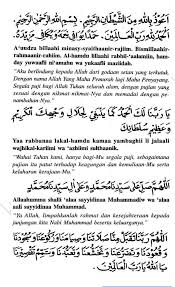 أَعُوْذُ بِاللهِ مِنَ الشَّيْطَانِ الرَّجِيْمِ. بِسْمِ اللهِ الرَّحْمٰنِ الرَّحِيْمِ.
A'uudzu billaahi minasy-syaithaanir-rajiim. Bismillaahir-
rahmaanir-rahiim. Al-hamdu lillaahi rabbil-'aalamiin, ham-
day yuwaafii ni'amahu wa yukaafii maziidah.
"Aku berlindung kepada Allah dari godaan setan yang terkutuk.
Dengan nama Allah Yang Maha Pemurah lagi Maha Penyayang.
Segala puji bagi Allah Tuhan seluruh alam, dengan pujian yang
sesuai dengan nikmat-nikmat-Nya dan memadai dengan pe-
nambahan-Nya."
يَا رَبَّنَا لَكَ الْحَمْدُ كَمَا يَنْبَغِيْ لِجَلَالِ وَجْهِكَ الْكَرِيْمِ
وَعَظِيْمِ سُلْطَانِكَ
Yaa rabbanaa lakal-hamdu kamaa yambaghii li jalaali
wajhikal-kariimi wa 'azhiimi sulthaanik.
"Wahai Tuhan kami, hanya bagi-Mu segala puji, sebagaimana
pujian itu patut terhadap keagungan dan kemuliaan-Mu serta
keluhuran kekuasaan-Mu."
اَللّٰهُمَّ صَلِّ عَلَى سَيِّدِنَا مُحَمَّدٍ وَعَلَى آلِ سَيِّدِنَا مُحَمَّدٍ
Allaahumma shalli 'alaa sayyidinaa Muhammadiw wa 'alaa
aali sayyidinaa Muhammad.
"Ya Allah, limpahkanlah rahmat dan kesejahteraan kepada
junjungan kita Nabi Muhammad beserta keluarganya."